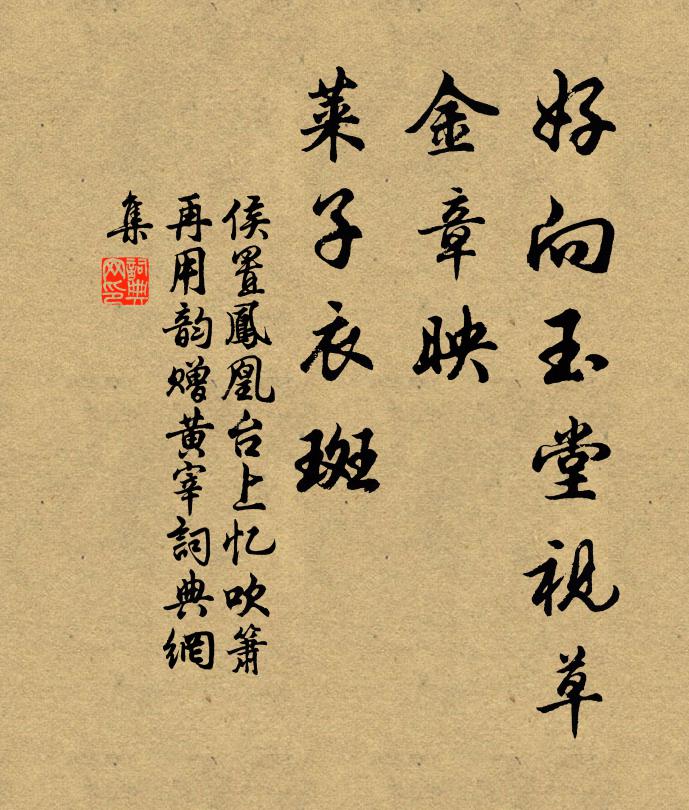 好向玉堂視草
金章映
萊子衣斑
侯置鳳凰台上忆吹箫
再用韵赠黄宰詞典網
集
詞典网印